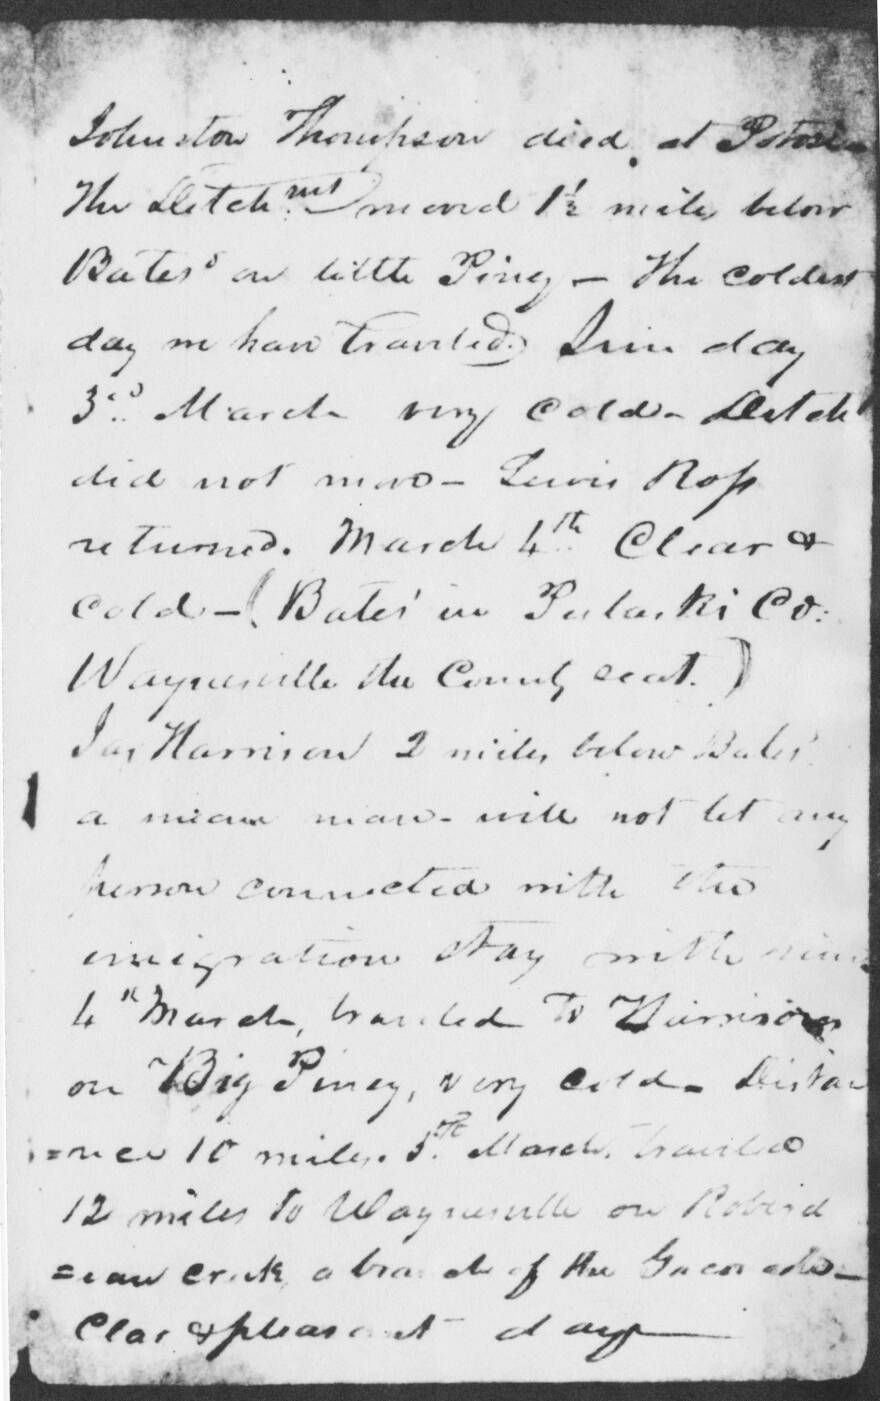 Johnston Thompson died at Potosi
The Detchmt moved 1½ mile below
Bates' on little Piney – The coldest
day we have traveled.
day
3rd March very cold – Detch
did not move – Lewis Ross
returned. March 4th Clear &
cold – (Bates' in Pulaski Co:
Waynesville the County seat.)
Jas Harrison 2 miles below Bates'
a mean man – will not let any
person connected with the
emigration stay with him
4th March, traveled to Harrisons
on Big Piney, very cold – Distan
=nce 10 miles. 5th March. traveled
12 miles to Waynesville on Robird
=eau creek, a branch of the Gasconade –
Clear & pleasant day